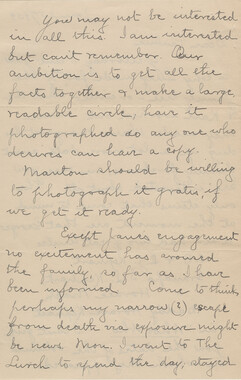 You may not be interested
in all this. I am interested
but can't remember. Our
ambition is, to get all the
facts together & make a large,
readable circle, have it
photographed so any one who
desires can have a copy.
Manton should be willing
to photograph it gratis, if
we get it ready.
Exept engagement
no excitement has aroused
the family, so far as I have
been informed Come to think
perhaps my narrow (?) escape
from death via exposure might
be news. Mon. I went to The
Lurch to spend the day, stayed